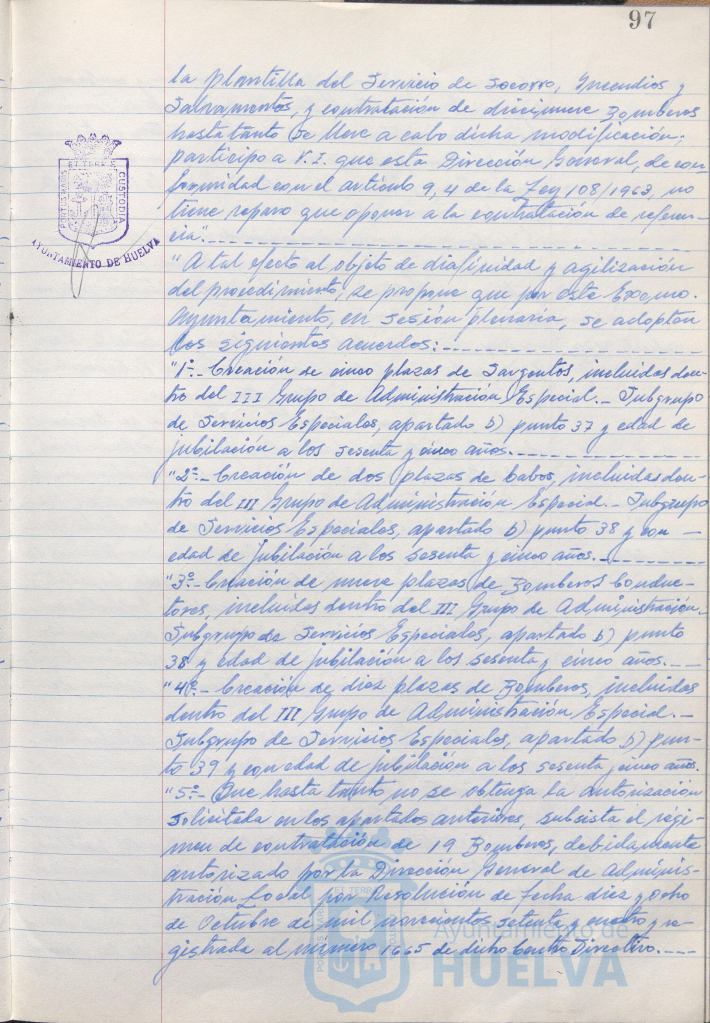 97
la plantilla del Servicio de Socorro, Incendios y
Salvamentos, y contratación de diecinueve Bomberos
hasta tanto se lleve a cabo dicha modificación;
participo a V.I. que esta Dirección General, de con-
formidad con el artículo 9, 4 de la Ley 108/1963, no
tiene reparo que oponer a la contratación de referen-
cia".
"A tal efecto al objeto de diafinidad y agilización
del procedimiento, se propone que por este Excmo.
Ayuntamiento, en sesión plenaria, se adopten
los siguientes acuerdos:
"1º.- Creación de cinco plazas de Sargentos, incluidas den-
tro del III Grupo de Administración Especial.- Subgrupo
de Servicios Especiales, apartado b) punto 37 y edad de
jubilación a los sesenta y cinco años.
"2º.- Creación de dos plazas de Cabos, incluidas den-
tro del III Grupo de Administración Especial.- Subgrupo
de Servicios Especiales, apartado b) punto 38 y con -
edad de jubilación a los sesenta y cinco años.
"3º.- Creación de nueve plazas de Bomberos Conduc-
tores, incluidas dentro del III Grupo de Administración.
Subgrupo de Servicios Especiales, apartado b) punto
38 y edad de jubilación a los sesenta y cinco años.
"4º.- Creación de diez plazas de Bomberos, incluidas
dentro del III Grupo de Administración Especial.-
Subgrupo de Servicios Especiales, apartado b) pun-
to 39 y con edad de jubilación a los sesenta y cinco años.
"5º.- Que hasta tanto no se obtenga la autorización
solicitada en los apartados anteriores, subsista el régi-
men de contratación de 19 Bomberos, debidamente
autorizado por la Dirección General de Adminis-
tración Local por Resolución de fecha diez y ocho
de Octubre de mil novecientos setenta y cuatro y re-
gistrada al número 1665 de dicho Centro Directivo.
PORTUS MARIS ET TERRE CUSTODIA
AYUNTAMIENTO DE HUELVA
Ayuntamiento de
HUELVA